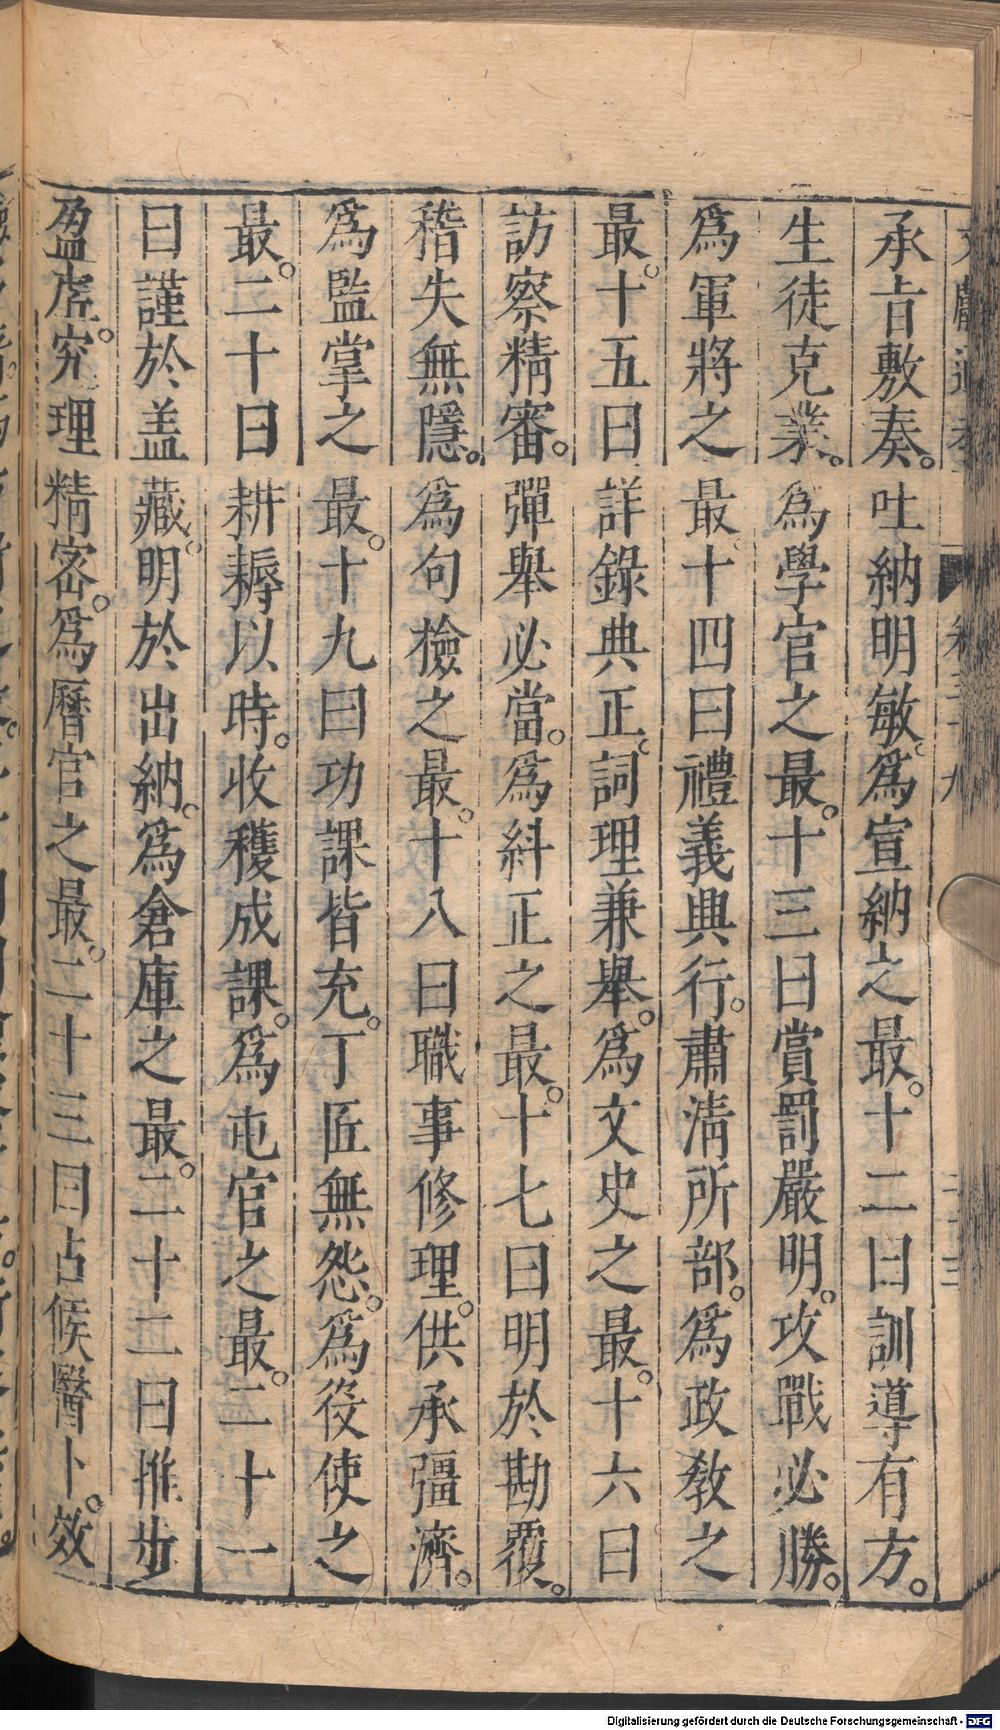 承旨敷奏。吐納明敏。爲宣納之最。十二曰訓導有方。
生徒克業。爲學官之最。十三曰賞罰嚴明。攻戰必勝。
爲軍將之最。十四曰禮義興行。肅淸所部。爲政敎之
最。十五曰詳錄典正。詞理兼舉。爲文史之最。十六曰
訪察精審。彈舉必當。爲糾正之最。十七曰明於勘覆。
稽失無隱。爲句檢之最。十八曰職事修理。供承彊濟。
爲監掌之最。十九曰功課皆充。丁匠無怨。爲役使之
最。二十曰耕耨以時。收穫成課。爲屯官之最。二十一
曰謹於盖藏。明於出納。爲倉庫之最。二十二曰推步
盈虛。究理精密。爲曆官之最。二十三曰占候醫卜。效
Digitalisierung gefördert durch die Deutsche Forschungsgemeinschaft - DFG